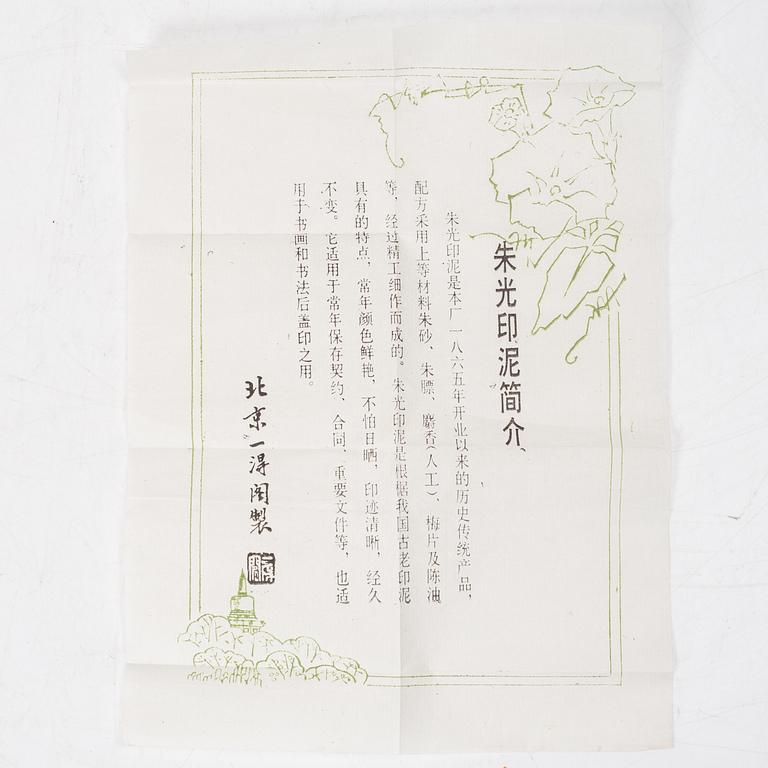 朱光印泥简介
朱光印泥是本厂一八六五年开业以来的历史传统产品，
配方采用上等材料朱砂、朱膘、麝香（人工）、梅片及陈油
等，经过精工细作而成的。朱光印泥是根据我国古老印泥
具有的特点，常年颜色鲜艳，不怕日晒，印迹清晰，经久
不变。它适用于常年保存契约、合同、重要文件等，也适
用于书画和书法后盖印之用。
北京一得阁製